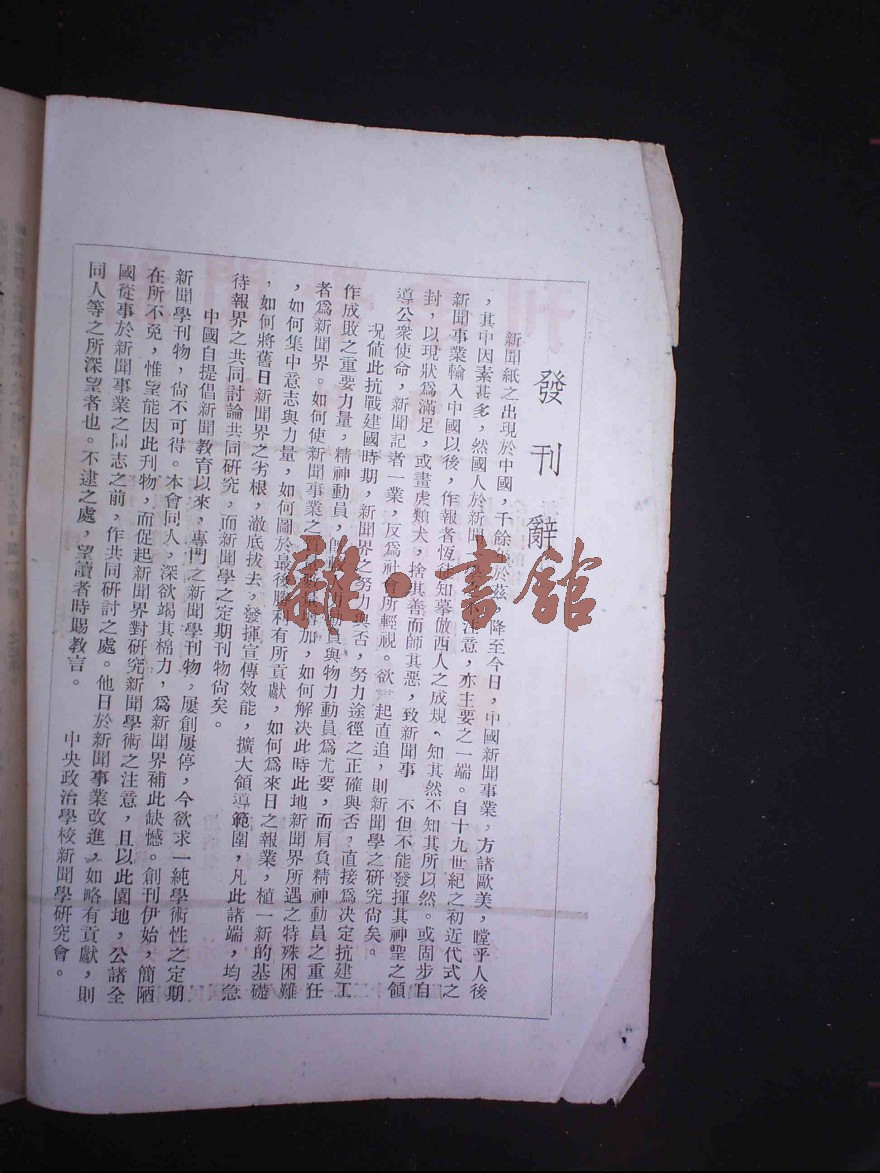 發刊辭
新聞紙之出現於中國，千餘於茲降至今日，中國新聞事業，方諸歐美，瞠乎人後
，其中因素甚多，然國人於新聞注意，亦主要之一端。自十九世紀之初近代式之
新聞事業輸入中國以後，作報者恆往知摹倣西人之成規，知其然不知其所以然。或固步自
封，以現狀爲滿足，或畫虎類犬，捨其善而師其惡，致新聞事不但不能發揮其神聖之領
導公衆使命，新聞記者一業，反爲社會所輕視。欲起直追，則新聞學之研究尙矣。
況値此抗戰建國時期，新聞界之努力與否，努力途徑之正確與否，直接爲決定抗建工
作成敗之重要力量，精神動員，動員與物力動員爲尤要，而肩負精神動員之重任
者爲新聞界。如何使新聞事業之加，如何解决此時此地新聞界所遇之特殊困難
，如何集中意志與力量，如何圖於最後勝利有所貢獻，如何爲來日之報業，植一新的基礎
，如何將舊日新聞界之劣根，澈底拔去，發揮宣傳效能，擴大領導範圍，凡此諸端，均急
待報界之共同討論共同研究，而新聞學之定期刊物尙矣。
中國自提倡新聞教育以來，專門之新聞學刊物，屢創屢停，今欲求一純學術性之定期
新聞學刊物，尙不可得。本會同人，深欲竭其棉力，爲新聞界補此缺憾。創刊伊始，簡陋
在所不免，惟望能因此刋物，而促起新聞界對研究新聞學術之注意，且以此園地，公諸全
國從事於新聞事業之同志之前，作共同研討之處。他日於新聞事業改進，如略有貢獻，則
同人等之所深望者也。不逮之處，望讀者時賜教言。
中央政治學校新聞學研究會。
雜·書館